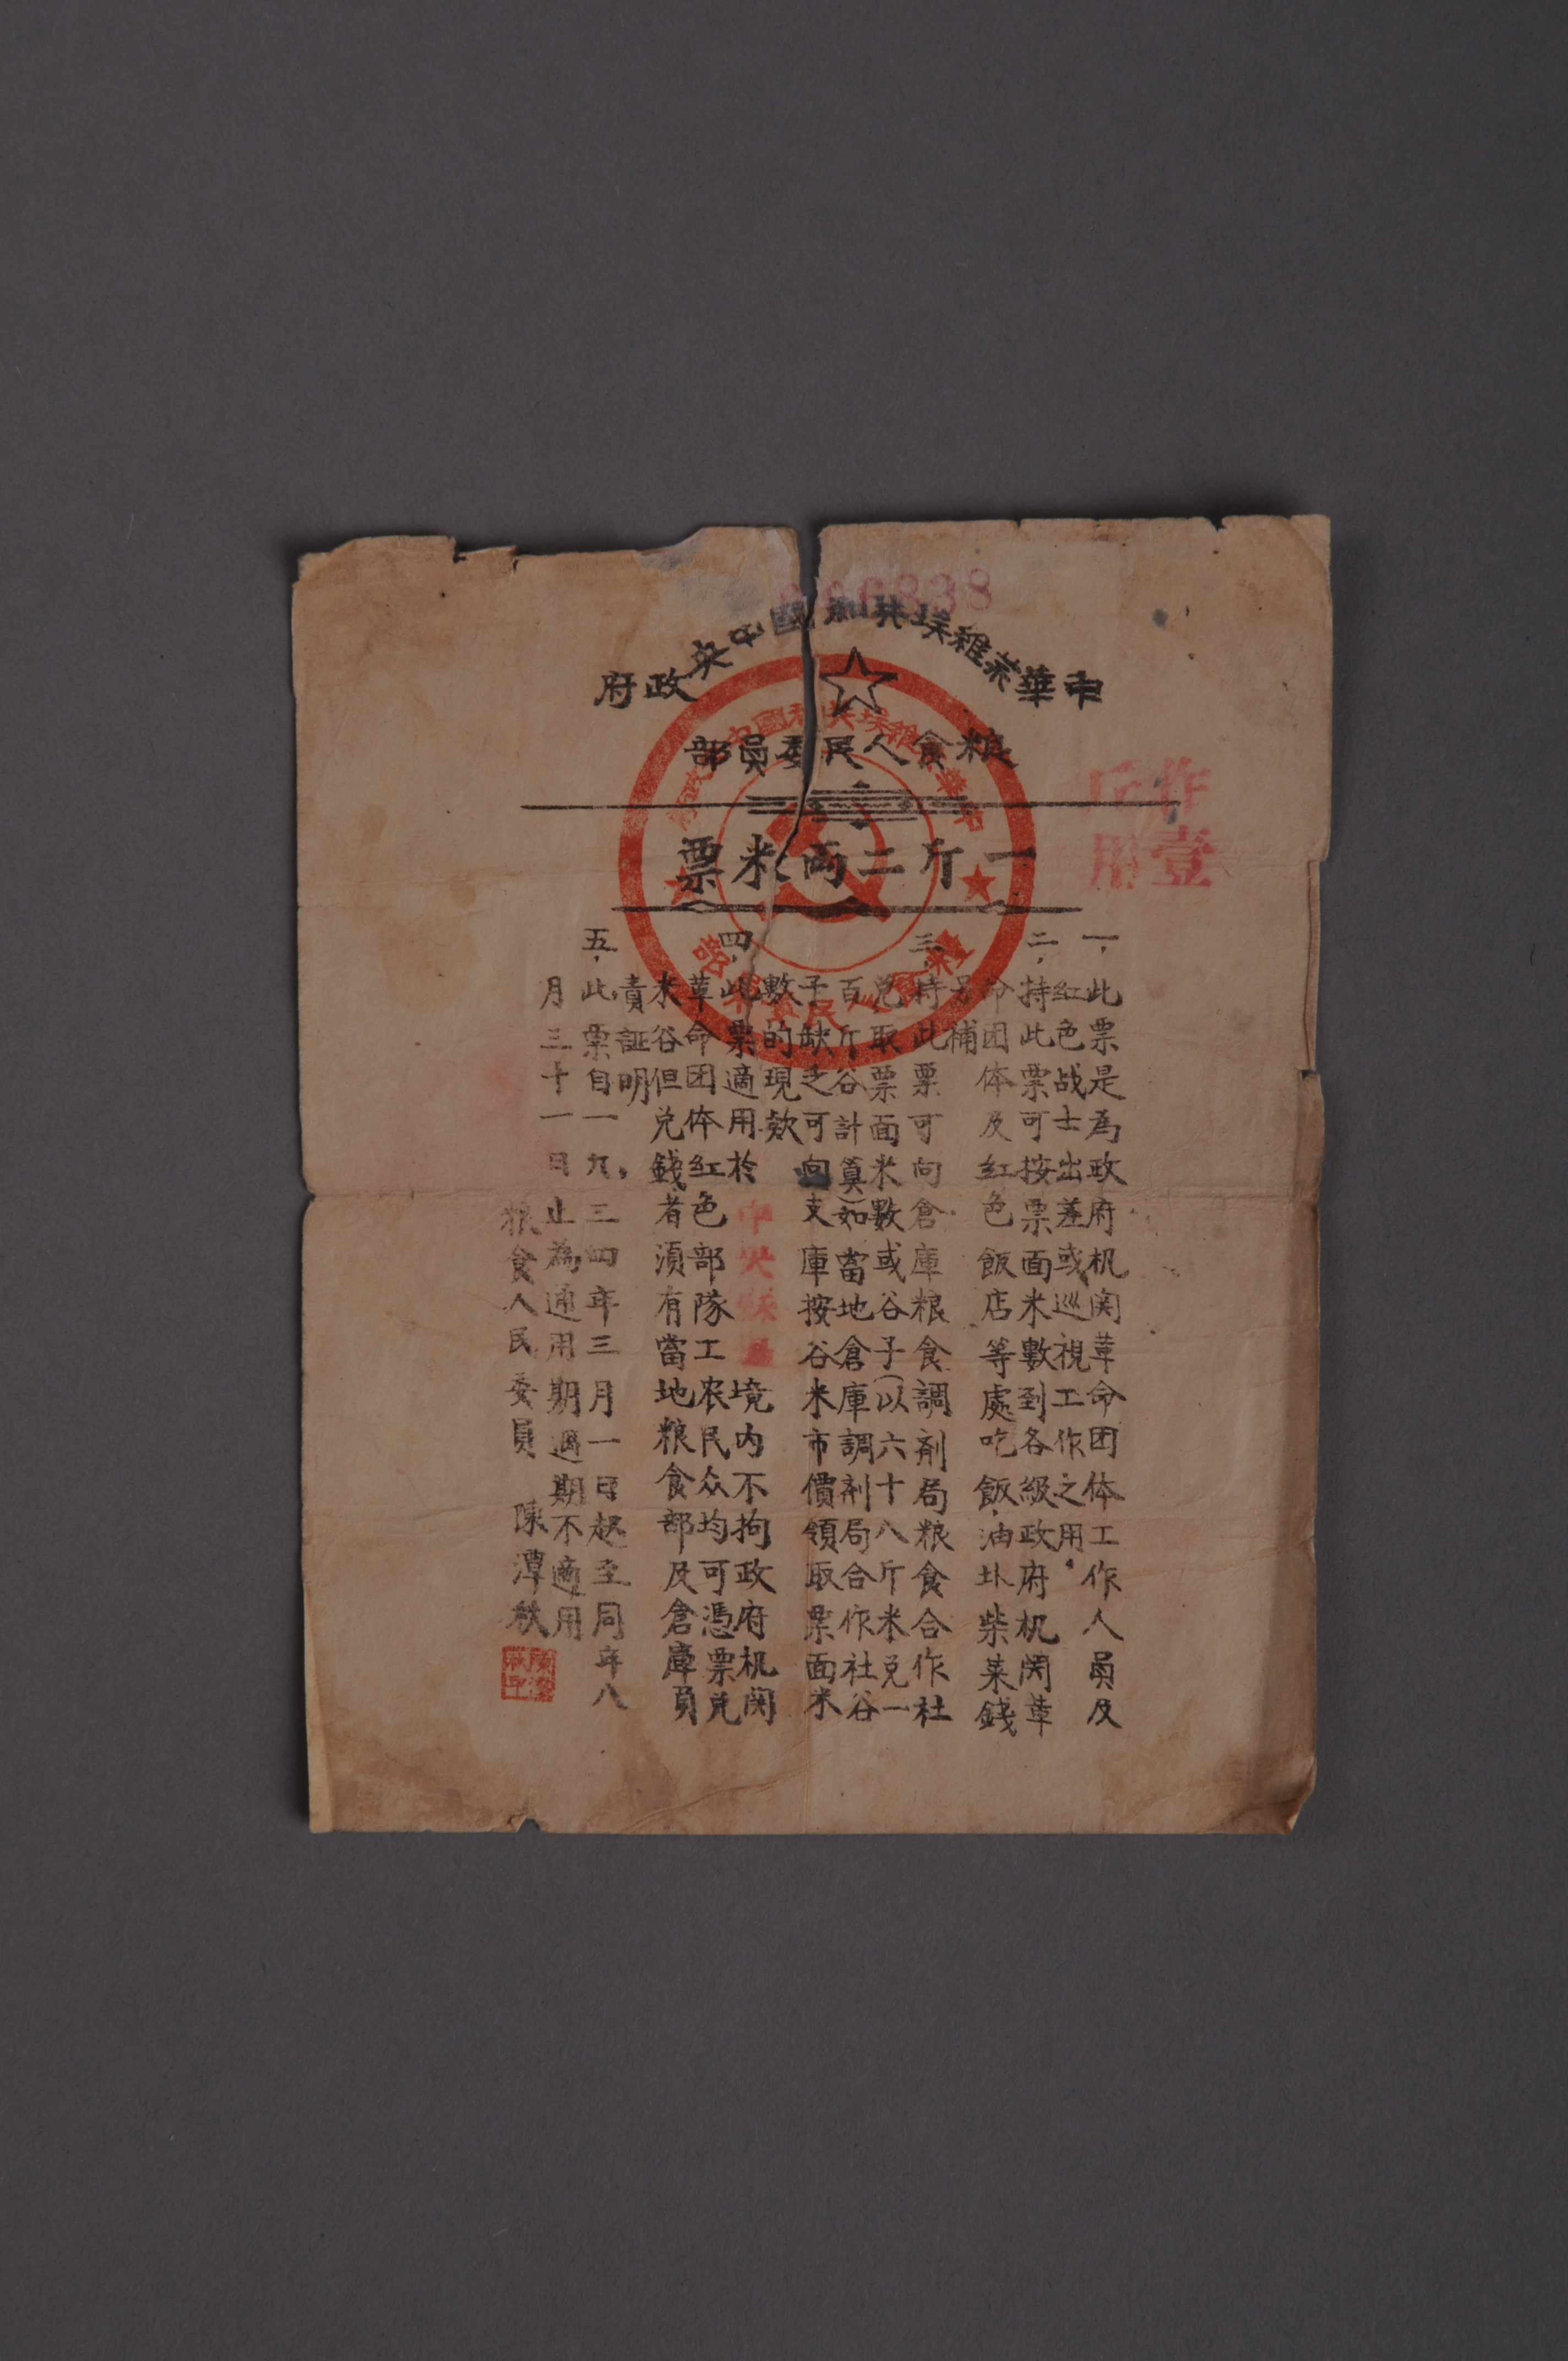 中華苏維埃共和國中央政府
粮食人民委員部
一斤二両米票
作壹
斤用
一、此票是為政府机関革命团体工作人員及
紅色战士出差或巡視工作之用。
二、持此票可按票面米數到各級政府机関革
命团体及紅色飯店等處吃飯油盐柴菜錢
另補
三、持此票可向倉庫粮食調剂局粮食合作社
兑取票面米數或谷子(以六十八斤米兑一
百斤谷計算)如當地倉庫調剂局合作社谷
子缺乏可向支庫按谷米市價領取票面米
數的現欵
四、此票適用於中央蘇區境内不拘政府机関
革命团体紅色部隊工农民众均可憑票兑
米谷但兑錢者須有當地粮食部及倉庫負
責証明
五、此票自一九三四年三月一日起至同年八
月三十一日止為通用期過期不適用
粮食人民委員 陳潭秋